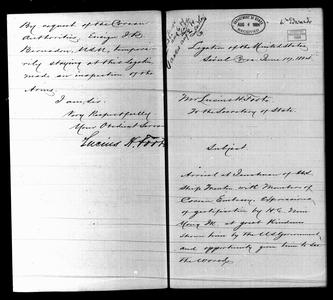 By request of the Corean
Authorities, Ensign J.B.
Bernadou, U.S.N., tempora-
rily staying at this Legation
made an inspection of the
Arms.
I am Sir.
Very Respectfully
Your Obedient Servan
Lucius H. Foote
DEPARTMENT OF STATE
AUG 4 1884
RECEIVED
Legation of the United States,
Söul Corea June 17, 1884
Mr Lucius H. Foote
To the Secretary of State.
Subject.
Arrival at Inchuan of U.S.
Ship Trenton with Members of
Corean Embassy. Expressions
of gratification by H.E. Min
Yong Ik at great kindness
shown him by the U.S. Government
and opportunity given him to see
the World.